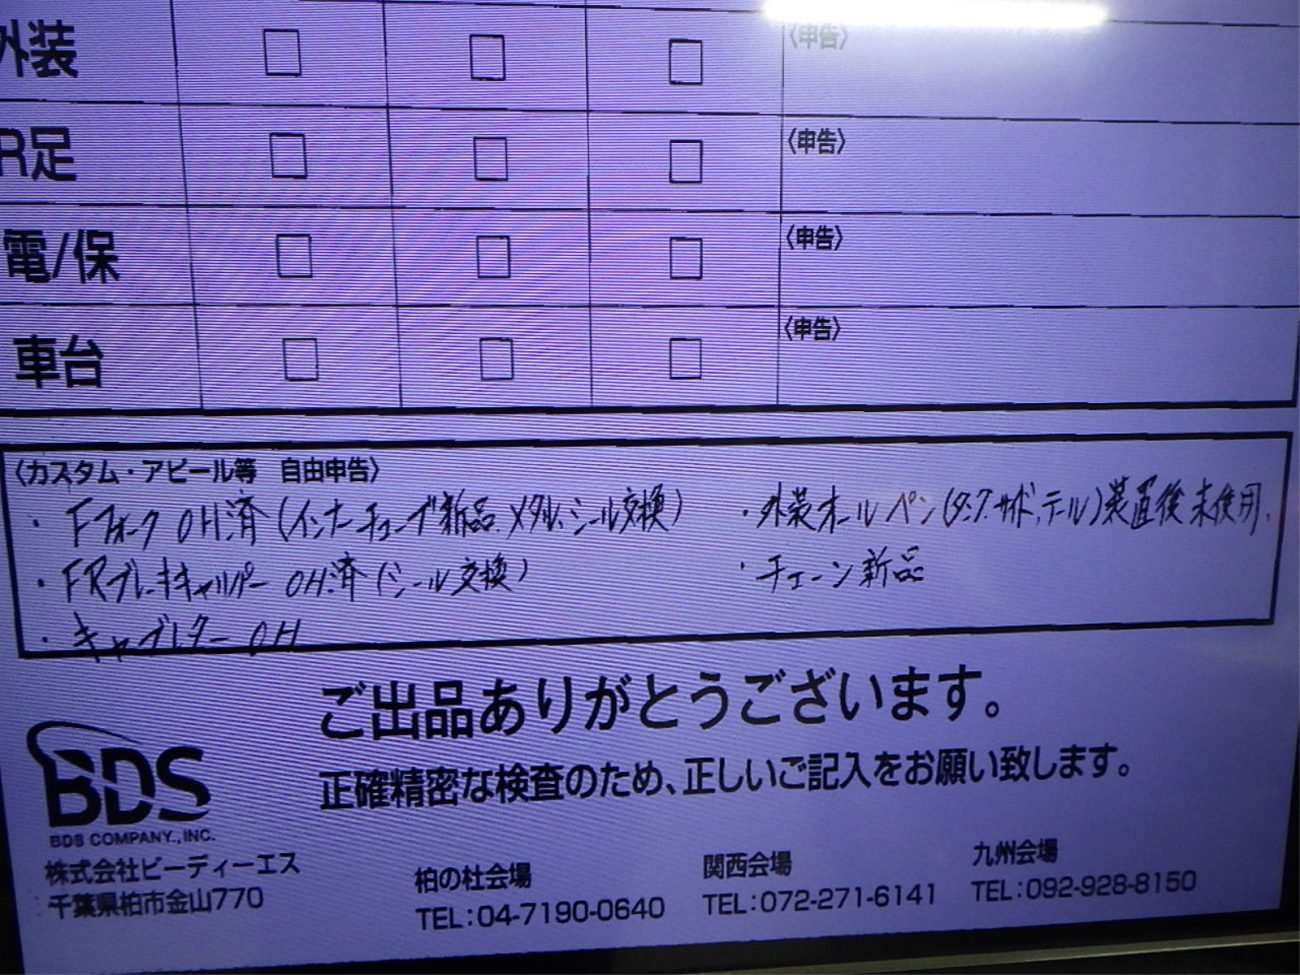 外装 □ □ □ 〈申告〉
R足 □ □ □ 〈申告〉
電/保 □ □ □ 〈申告〉
車台 □ □ □ 〈申告〉
〈カスタム・アピール等 自由申告〉
・Fフォーク OH済(インナーチューブ新品.メタル、シール交換)
・FRブレーキキャリパー OH済(シール交換)
・キャブレター OH
・外装オールペン(タンク.サイド、テール)装置後未使用.
・チェーン新品
ご出品ありがとうございます。
正確精密な検査のため、正しいご記入をお願い致します。
BDS
BDS COMPANY., INC.
株式会社ビーディーエス
千葉県柏市金山770
柏の杜会場
TEL:04-7190-0640
関西会場
TEL:072-271-6141
九州会場
TEL:092-928-8150